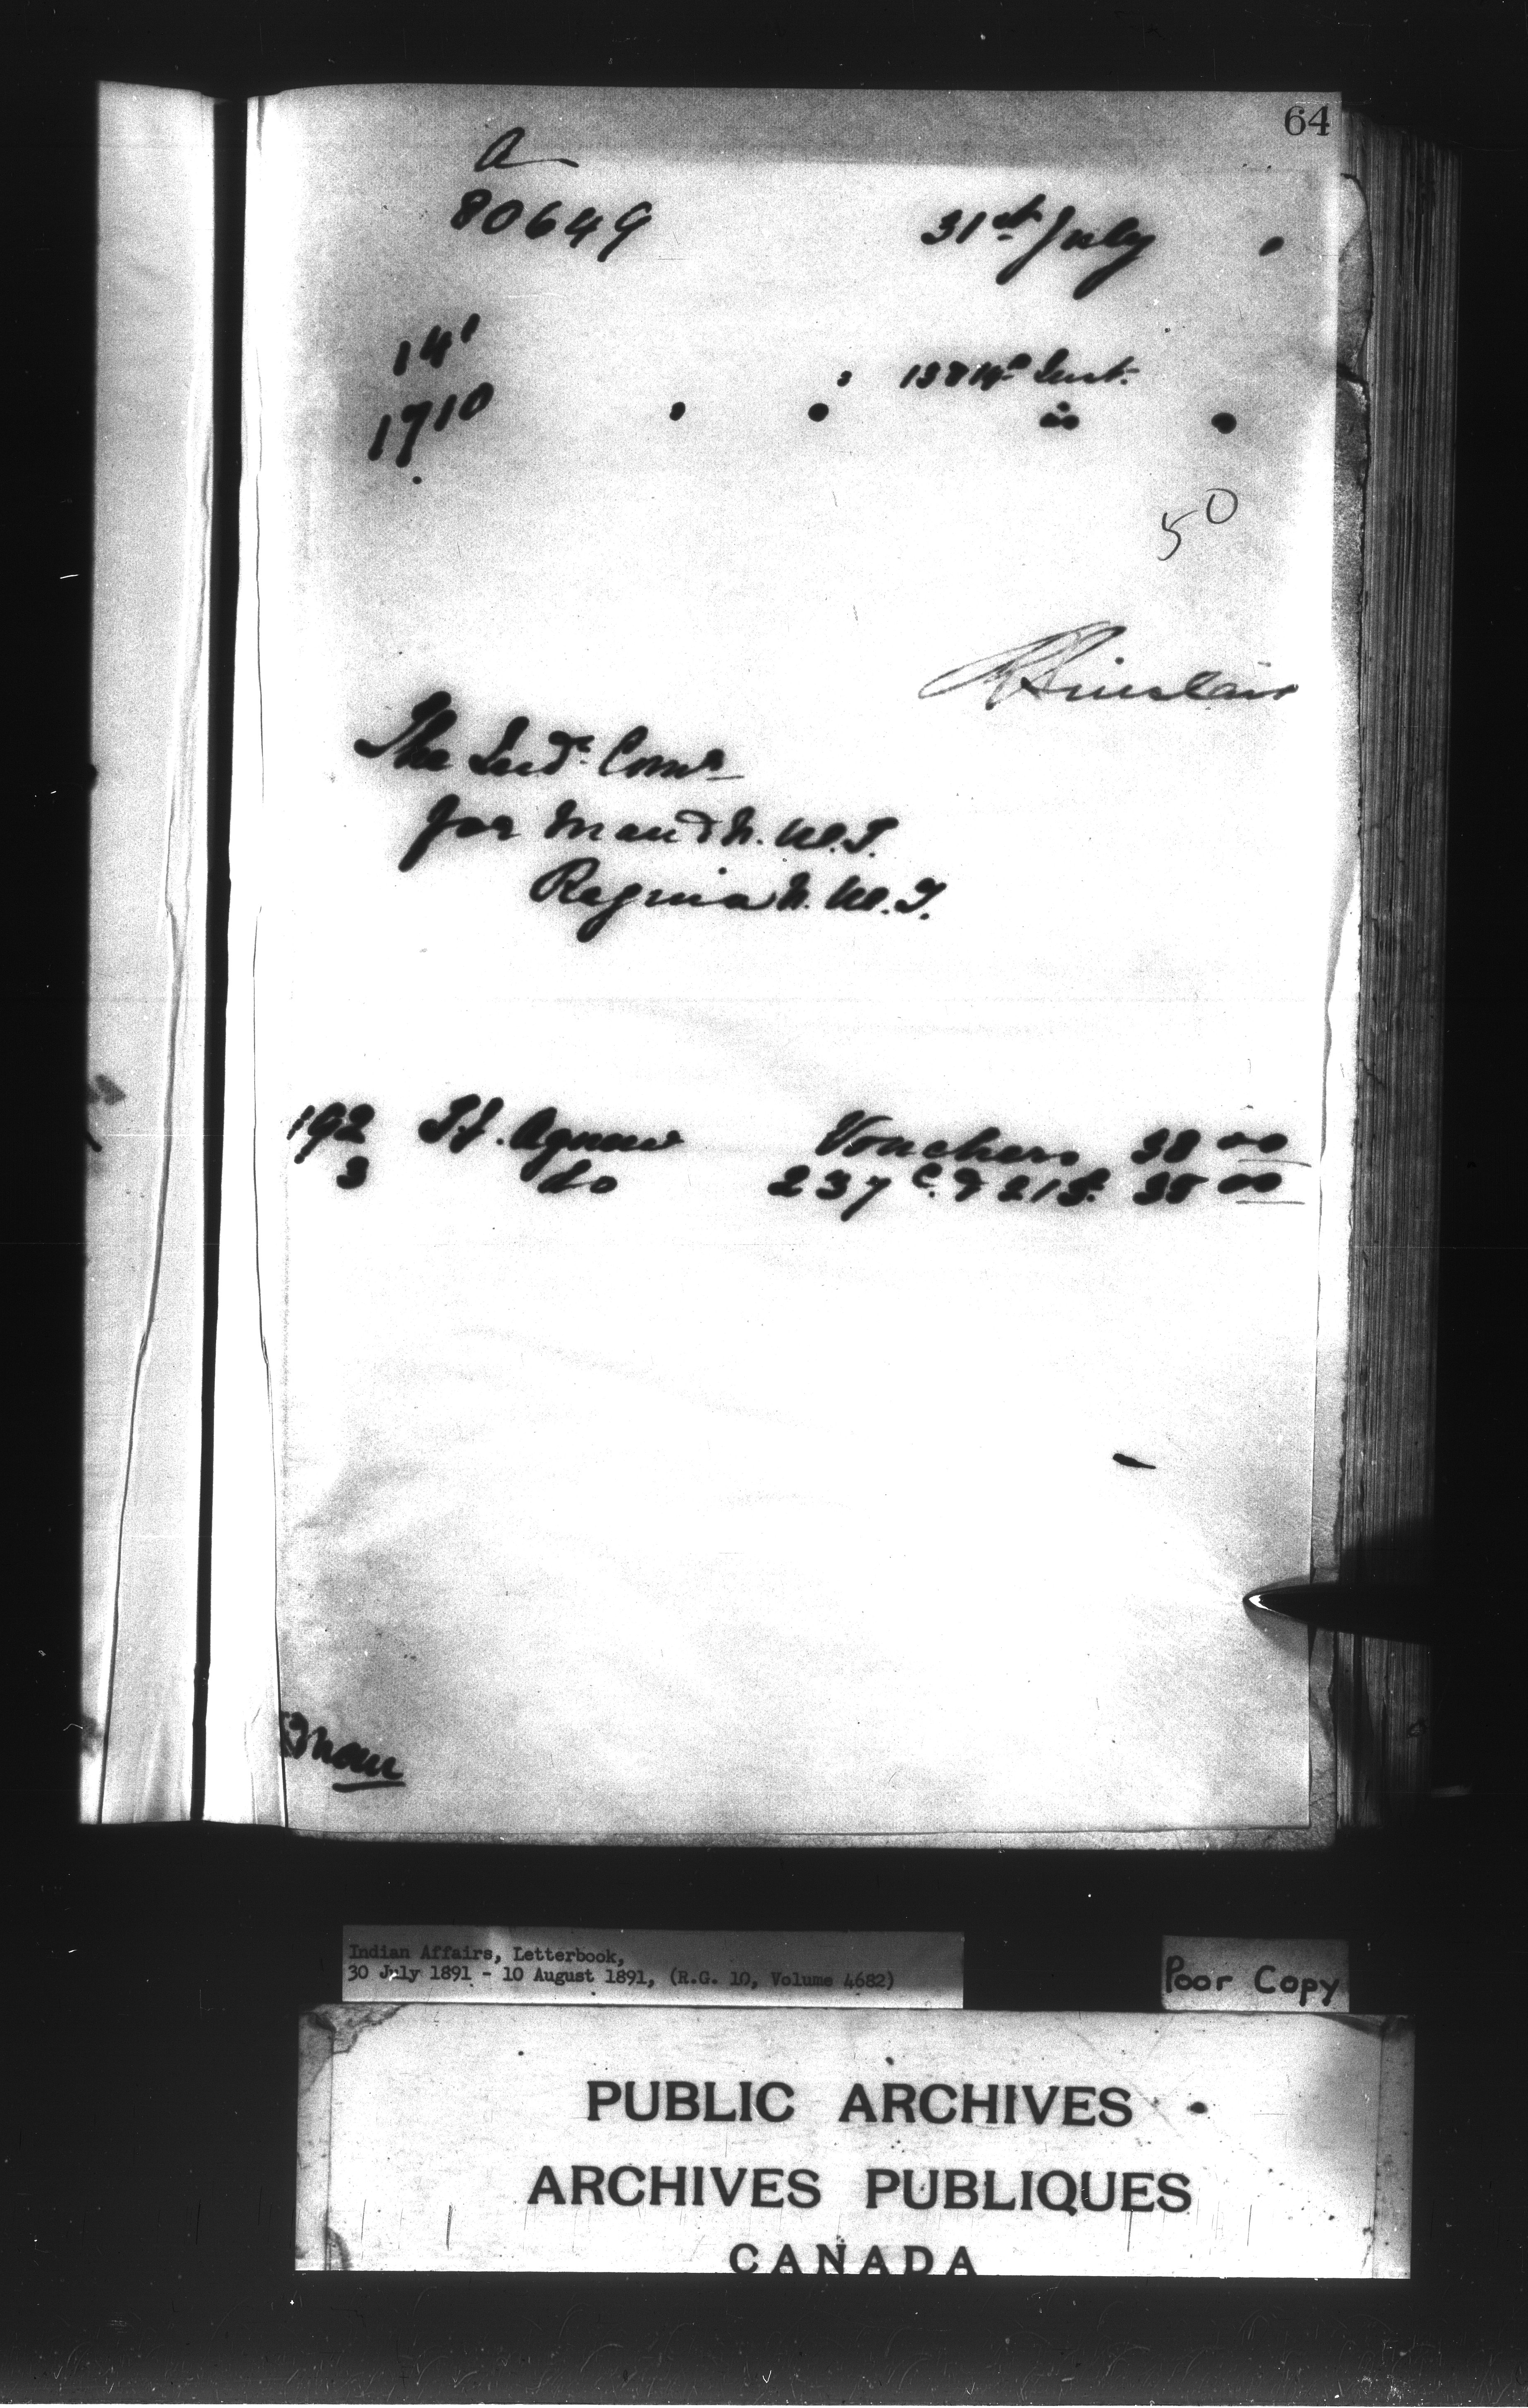 64
a
80649
31st July
141
1710
13 & 14th Inst.
50
R Sinclair
The Indn. Comr
for Man & N. W. T.
Regina N. W. T.
192 Agnew Vouchers 38 00
3 do 237 c. & 215. 35 00
Indian Affairs, Letterbook,
30 July 1891 - 10 August 1891, (R.G. 10, Volume 4682)
Poor Copy
PUBLIC ARCHIVES
ARCHIVES PUBLIQUES
CANADA